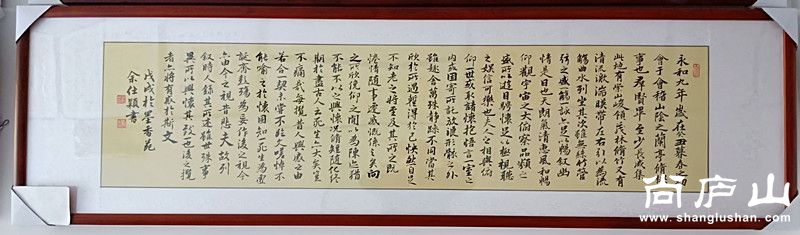 永和九年歲在癸丑暮春之初
會于會稽山陰之蘭亭脩禊
事也群賢畢至少長咸集
此地有崇山峻領茂林脩竹又有
清流激湍暎帶左右引以為流
觴曲水列坐其次雖無絲竹管
弦之盛一觴一詠亦足以暢叙幽
情是日也天朗氣清惠風和暢
仰觀宇宙之大俯察品類之
盛所以遊目騁懷足以極視聽
之娛信可樂也夫人之相與俯
仰一世或取諸懷抱悟言一室之
內或因寄所託放浪形骸之外
雖趣舍萬殊靜躁不同當其
欣於所遇暫得於己快然自足
不知老之將至及其所之既
惓情隨事遷感慨係之矣向
之所欣俛仰之間以為陳迹猶
不能不以之興懷況脩短隨化終
期於盡古人云死生亦大矣豈
不痛哉每攬昔人興感之由
若合一契未嘗不臨文嗟悼不
能喻之於懷固知一死生為虛
誕齊彭殤為妄作後之視今
亦由今之視昔悲夫故列
叙時人錄其所述雖世殊事
異所以興懷其致一也後之攬
者亦將有感於斯文
戊戌於墨香苑
余仕穎書
尚庐山
www.shanglushan.com